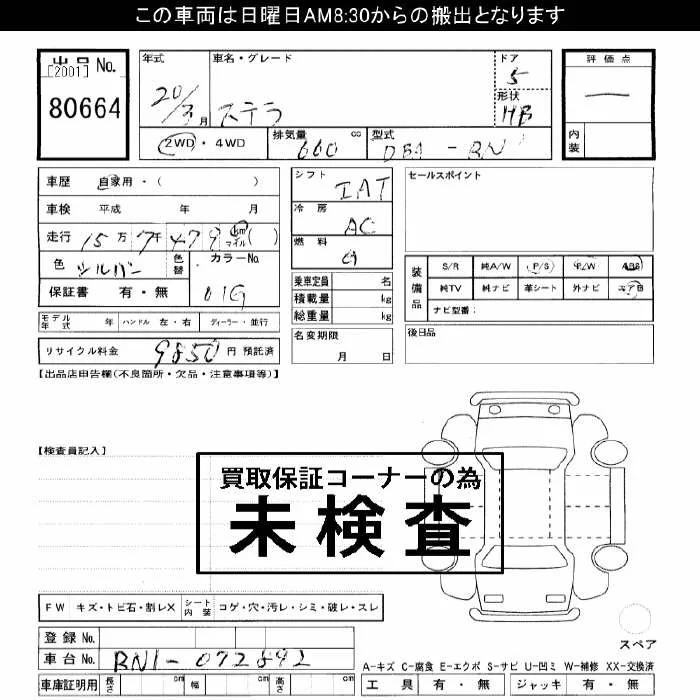 この車両は日曜日AM8:30からの搬出となります
出品 No. [2001]
80664
年式 20/3月
車名・グレード ステラ
ドア 5
形状 HB
2WD・4WD
排気量 660 cc
型式 DBA-RN1
評価点 一
内装
車歴 自家用・( )
車検 平成 年 月
走行 15万7千479 km マイル ( )
色 シルバー 色替 カラーNo. 01G
保証書 有・無
モデル年式 年 ハンドル 左・右 ディーラー・並行
リサイクル料金 9850 円 預託済
シフト IAT
冷房 AC
燃料 G
乗車定員 名
積載量 kg
総重量 kg
名変期限 月 日
セールスポイント
装備品 S/R 純A/W P/S P/W ABS
純TV 純ナビ 革シート 外ナビ エアB
ナビ型番:
後日品
【出品店申告欄(不良箇所・欠品・注意事項等)】
【検査員記入】
買取保証コーナーの為
未検査
FW キズ・トビ石・割レX シート内装 コゲ・穴・汚レ・シミ・破レ・スレ
登録 No.
車台 No. RN1-072892
車庫証明用 長さ cm 幅 cm 高さ cm
スペア
A-キズ C-腐食 E-エクボ S-サビ U-凹ミ W-補修 XX-交換済
工具 有・無 ジャッキ 有・無